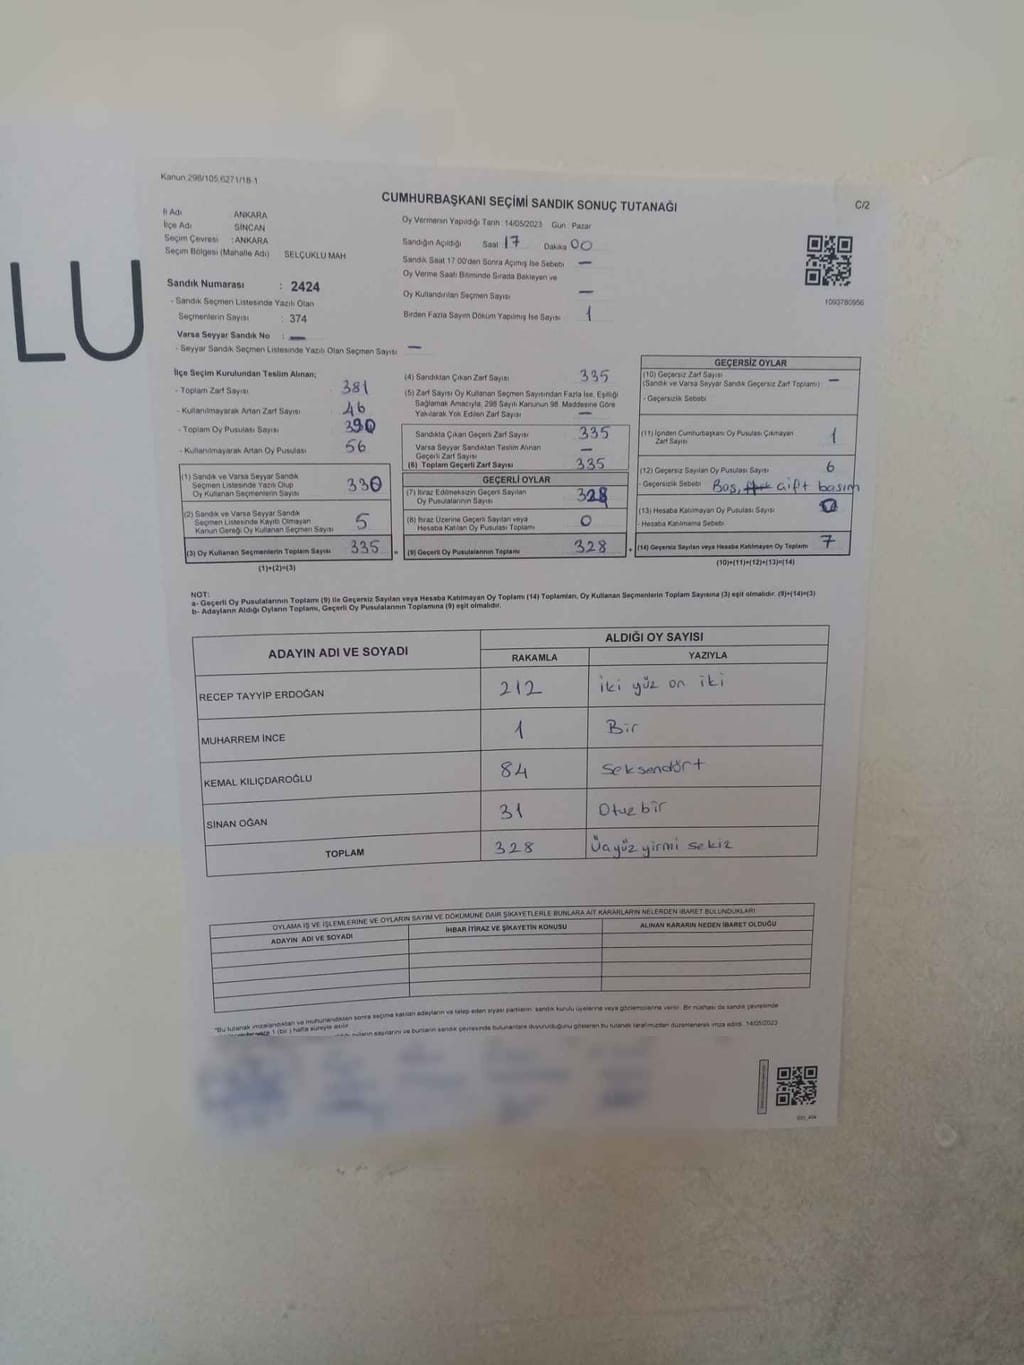 LU
Kanun.298/105,6271/18-1
CUMHURBAŞKANI SEÇİMİ SANDIK SONUÇ TUTANAĞI
C/2
İl Adı ANKARA
İlçe Adı SİNCAN
Seçim Çevresi : ANKARA
Seçim Bölgesi (Mahalle Adı) SELÇUKLU MAH
Sandık Numarası : 2424
- Sandık Seçmen Listesinde Yazılı Olan
Seçmenlerin Sayısı : 374
Varsa Seyyar Sandık No : —
- Seyyar Sandık Seçmen Listesinde Yazılı Olan Seçmen Sayısı —
Oy Vermenin Yapıldığı Tarih: 14/05/2023 Gün: Pazar
Sandığın Açıldığı Saat 17 Dakika 00
Sandık Saat 17:00'den Sonra Açılmış İse Sebebi —
Oy Verme Saati Bitiminde Sırada Bekleyen ve
Oy Kullandırılan Seçmen Sayısı —
Birden Fazla Sayım Döküm Yapılmış İse Sayısı 1
1093780956
İlçe Seçim Kurulundan Teslim Alınan;
- Toplam Zarf Sayısı 381
- Kullanılmayarak Artan Zarf Sayısı 46
- Toplam Oy Pusulası Sayısı 390
- Kullanılmayarak Artan Oy Pusulası 56
(1) Sandık ve Varsa Seyyar Sandık
Seçmen Listesinde Yazılı Olup
Oy Kullanan Seçmenlerin Sayısı 330
(2) Sandık ve Varsa Seyyar Sandık
Seçmen Listesinde Kayıtlı Olmayan
Kanun Gereği Oy Kullanan Seçmen Sayısı 5
(3) Oy Kullanan Seçmenlerin Toplam Sayısı 335 =
(1)+(2)=(3)
(4) Sandıktan Çıkan Zarf Sayısı 335
(5) Zarf Sayısı Oy Kullanan Seçmen Sayısından Fazla İse, Eşitliği
Sağlamak Amacıyla, 298 Sayılı Kanunun 98. Maddesine Göre
Yakılarak Yok Edilen Zarf Sayısı —
Sandıkta Çıkan Geçerli Zarf Sayısı 335
Varsa Seyyar Sandıktan Teslim Alınan
Geçerli Zarf Sayısı —
(6) Toplam Geçerli Zarf Sayısı 335
GEÇERLİ OYLAR
(7) İtiraz Edilmeksizin Geçerli Sayılan
Oy Pusulalarının Sayısı 328
(8) İtiraz Üzerine Geçerli Sayılan veya
Hesaba Katılan Oy Pusulası Toplamı 0
(9) Geçerli Oy Pusulalarının Toplamı 328 +
GEÇERSİZ OYLAR
(10) Geçersiz Zarf Sayısı
(Sandık ve Varsa Seyyar Sandık Geçersiz Zarf Toplamı) —
- Geçersizlik Sebebi
(11) İçinden Cumhurbaşkanı Oy Pusulası Çıkmayan
Zarf Sayısı 1
(12) Geçersiz Sayılan Oy Pusulası Sayısı 6
- Geçersizlik Sebebi Boş, çift basım
(13) Hesaba Katılmayan Oy Pusulası Sayısı
- Hesaba Katılmama Sebebi
(14) Geçersiz Sayılan veya Hesaba Katılmayan Oy Toplamı 7
(10)+(11)+(12)+(13)=(14)
NOT:
a- Geçerli Oy Pusulalarının Toplamı (9) ile Geçersiz Sayılan veya Hesaba Katılmayan Oy Toplamı (14) Toplamları, Oy Kullanan Seçmenlerin Toplam Sayısına (3) eşit olmalıdır. (9)+(14)=(3)
b- Adayların Aldığı Oyların Toplamı, Geçerli Oy Pusulalarının Toplamına (9) eşit olmalıdır.
ADAYIN ADI VE SOYADI ALDIĞI OY SAYISI
RAKAMLA YAZIYLA
RECEP TAYYİP ERDOĞAN 212 iki yüz on iki
MUHARREM İNCE 1 Bir
KEMAL KILIÇDAROĞLU 84 Seksendört
SİNAN OĞAN 31 Otuzbir
TOPLAM 328 Üçyüz yirmi sekiz
OYLAMA İŞ VE İŞLEMLERİNE VE OYLARIN SAYIM VE DÖKÜMÜNE DAİR ŞİKAYETLERLE BUNLARA AİT KARARLARIN NELERDEN İBARET BULUNDUKLARI
ADAYIN ADI VE SOYADI İHBAR İTİRAZ VE ŞİKAYETİN KONUSU ALINAN KARARIN NEDEN İBARET OLDUĞU
*Bu tutanak imzalandıktan ve mühürlendikten sonra seçime katılan adayların ve talep eden siyasi partilerin sandık kurulu üyelerine veya gözlemcilerine verilir. Bir nüshası da sandık çevresinde
1 (bir) hafta süreyle asılır.
sayılarını ve bunların sandık çevresinde bulunanlara duyurulduğunu gösteren bu tutanak tarafımızdan düzenlenerek imza edildi. 14/05/2023